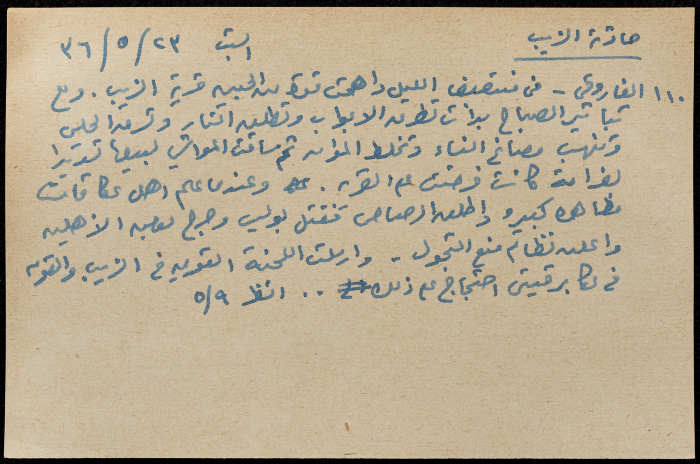 حادثة الزيب
السبت ٢٣/٥/٣٦
١١٠ الفاروقي - في منتصف الليل داهمت قوة من الجيش قرية الزيب . ومع
تباشير الصباح بدأت تطرق الابواب وتطلق النار وتسرق الحلي
وتنهب مصاغ النساء وتخلط المؤن ثم ساقت المواشي لبيعها تسديدا
لغرامة كانت فرضت على القرية . وعندما علم اهل عكا قامت
مظاهرة كبيرة واطلق الرصاص فقتل بوليس وجرح بعض الأهلين
واعلن نظام منع التجول - وارسلت اللجنة القومية في الزيب والقومية
في عكا برقيتي احتجاج على ذلك .. انظر ٥/٩